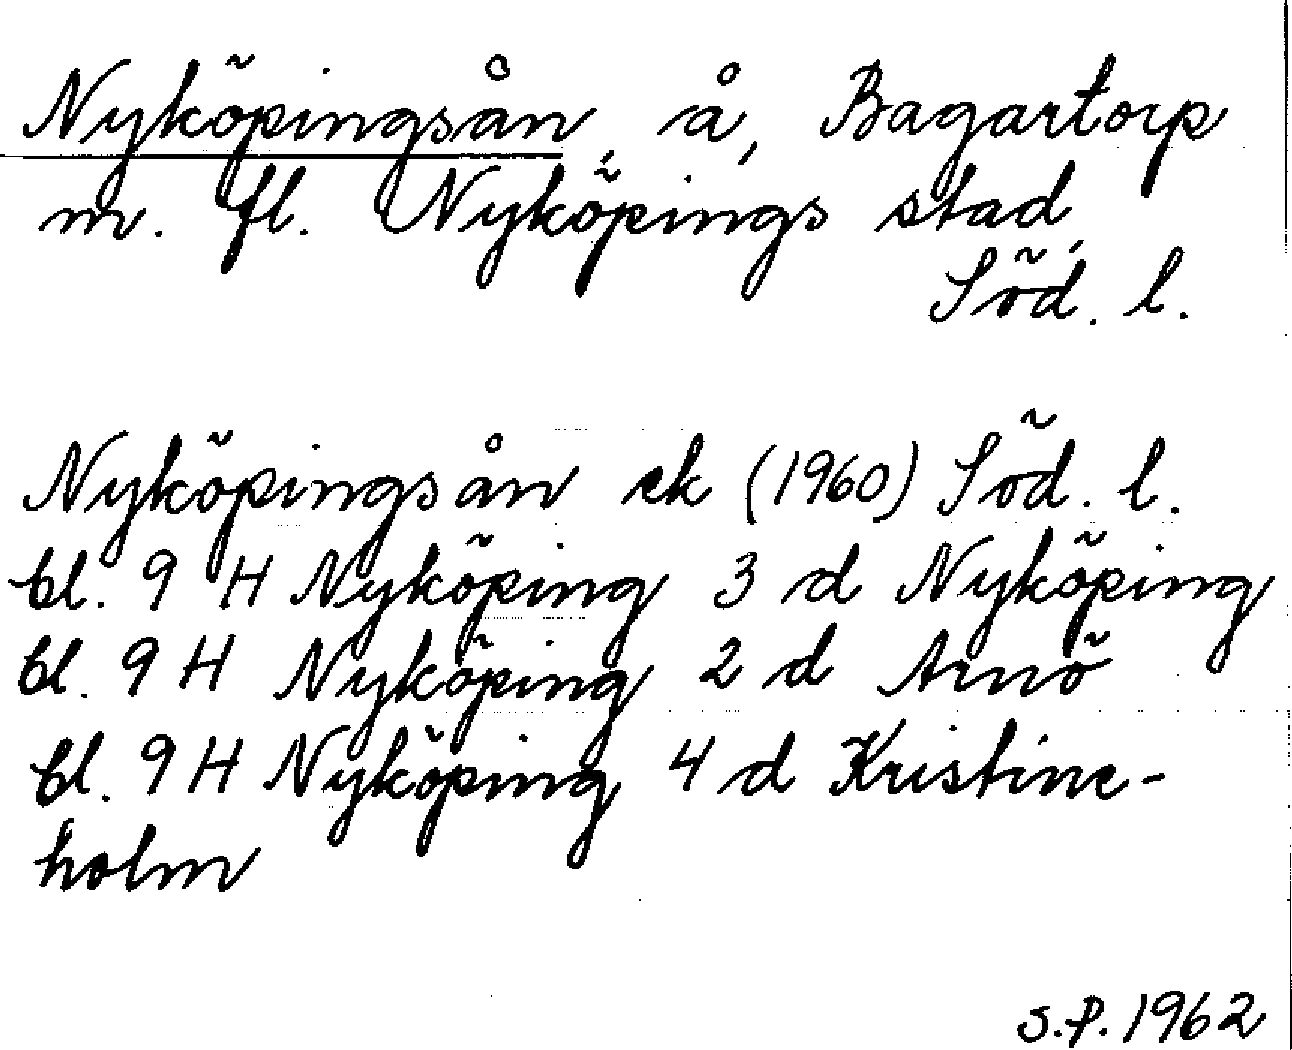 Nyköpingsån, å, Bagartorp
m. fl. Nyköpings stad,
Söd. l.
Nyköpingsån ek (1960) Söd. l.
bl. 9 H Nyköping 3 d Nyköping
bl. 9 H Nyköping 2 d Arnö
bl. 9 H Nyköping 4 d Kristine-
holm
S.P. 1962